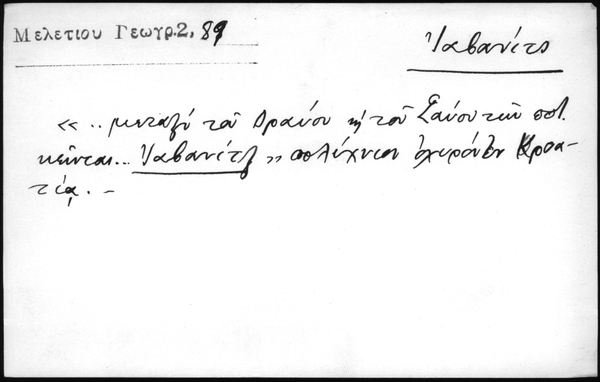 Μελετίου Γεωγρ. 2, 89
Ἰαβανίτς
« .. μεταξὺ τοῦ Δραύου κ τοῦ Σαύου τῶν ποτ.
κεῖνται... Ἰαβανίτζ » πολίχνιον ὀχυρὸν ἐν Κροα-
τίᾳ. –